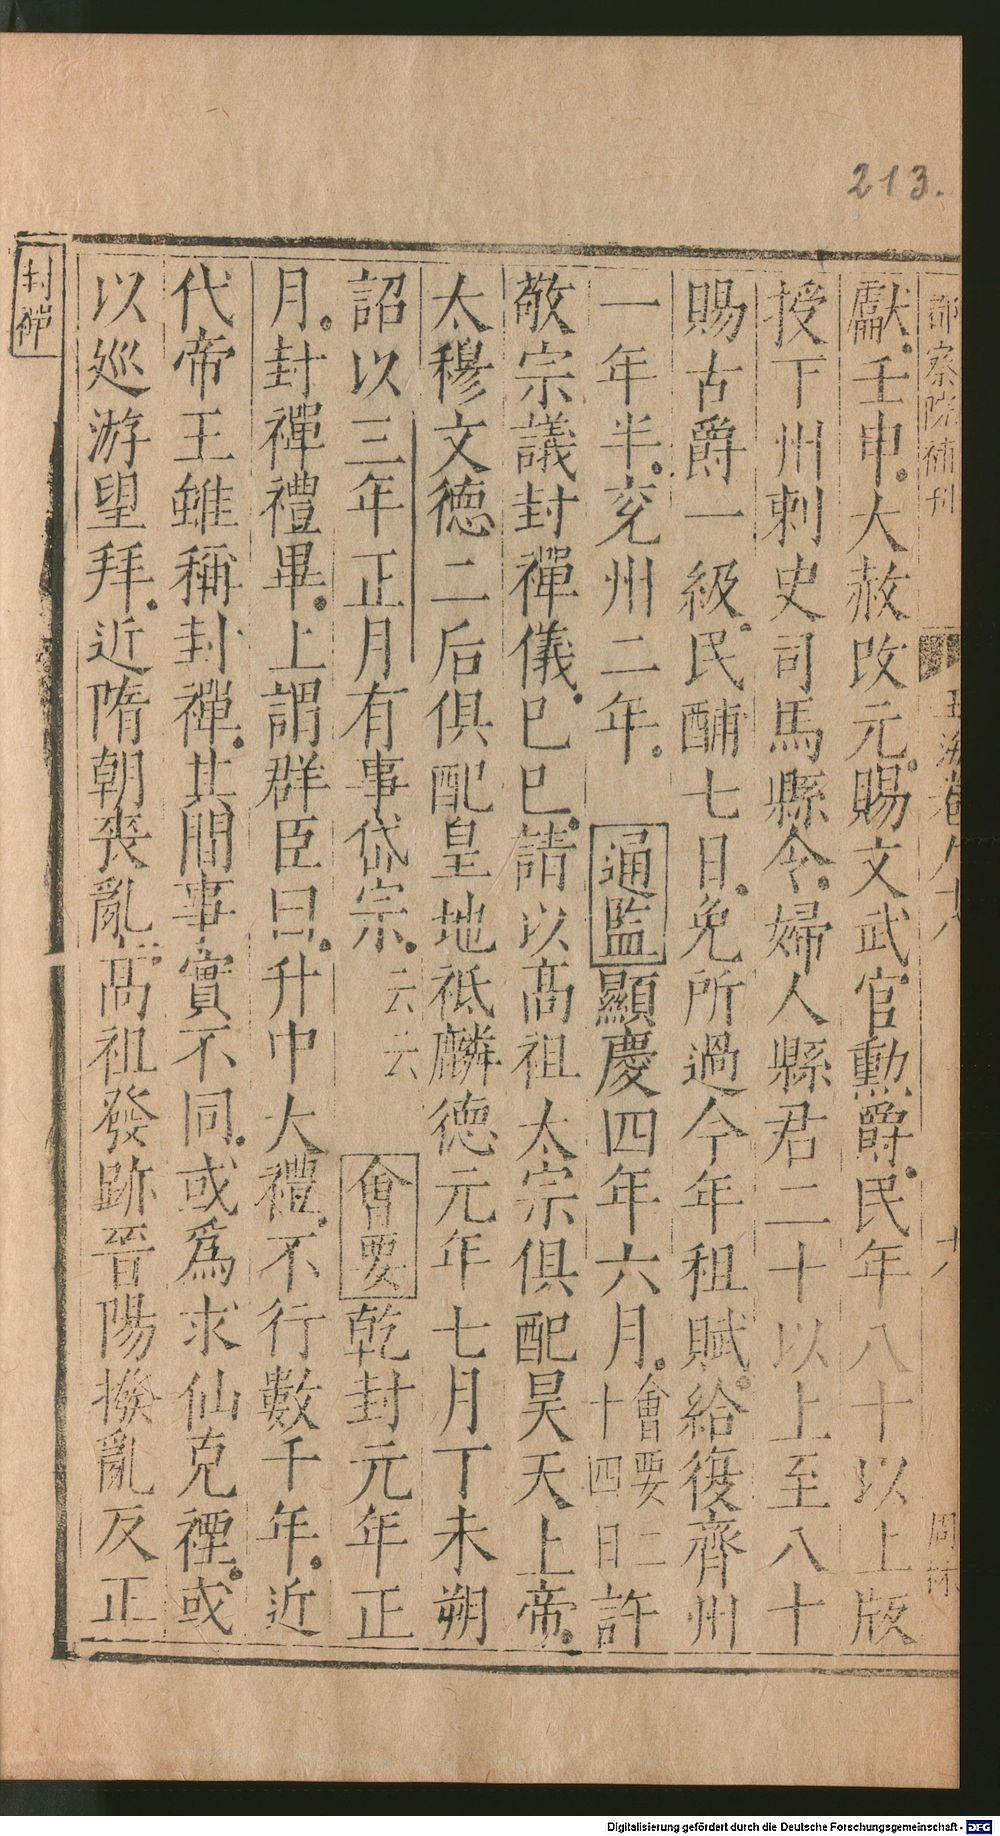 213.
都察院補刊 玉海卷九十八 十八 周林
獻壬申大赦改元賜文武官勲爵民年八十以上版
授下州刺史司馬縣令婦人縣君二十以上至八十
賜古爵一級民酺七日免所過今年租賦給復齊州
一年半兖州二年 通監顯慶四年六月會要二十四日許
敬宗議封禪儀巳巳請以髙祖太宗俱配昊天上帝
太穆文德二后俱配皇地祗麟德元年七月丁未朔
詔以三年正月有事岱宗云云 會要乾封元年正
月封禪禮畢上謂群臣曰升中大禮不行數千年近
代帝王雖稱封禪其間事實不同或爲求仙克禋或
以巡游望拜近隋朝喪亂髙祖發跡晉陽撥亂反正
封禪
Digitalisierung gefördert durch die Deutsche Forschungsgemeinschaft - DFG